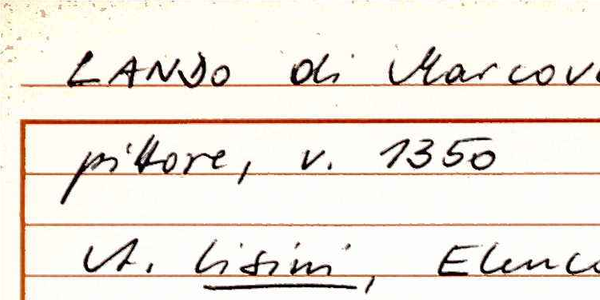 LANDO di Marcov
pittore, v. 1350
A. Lisini, Elenc